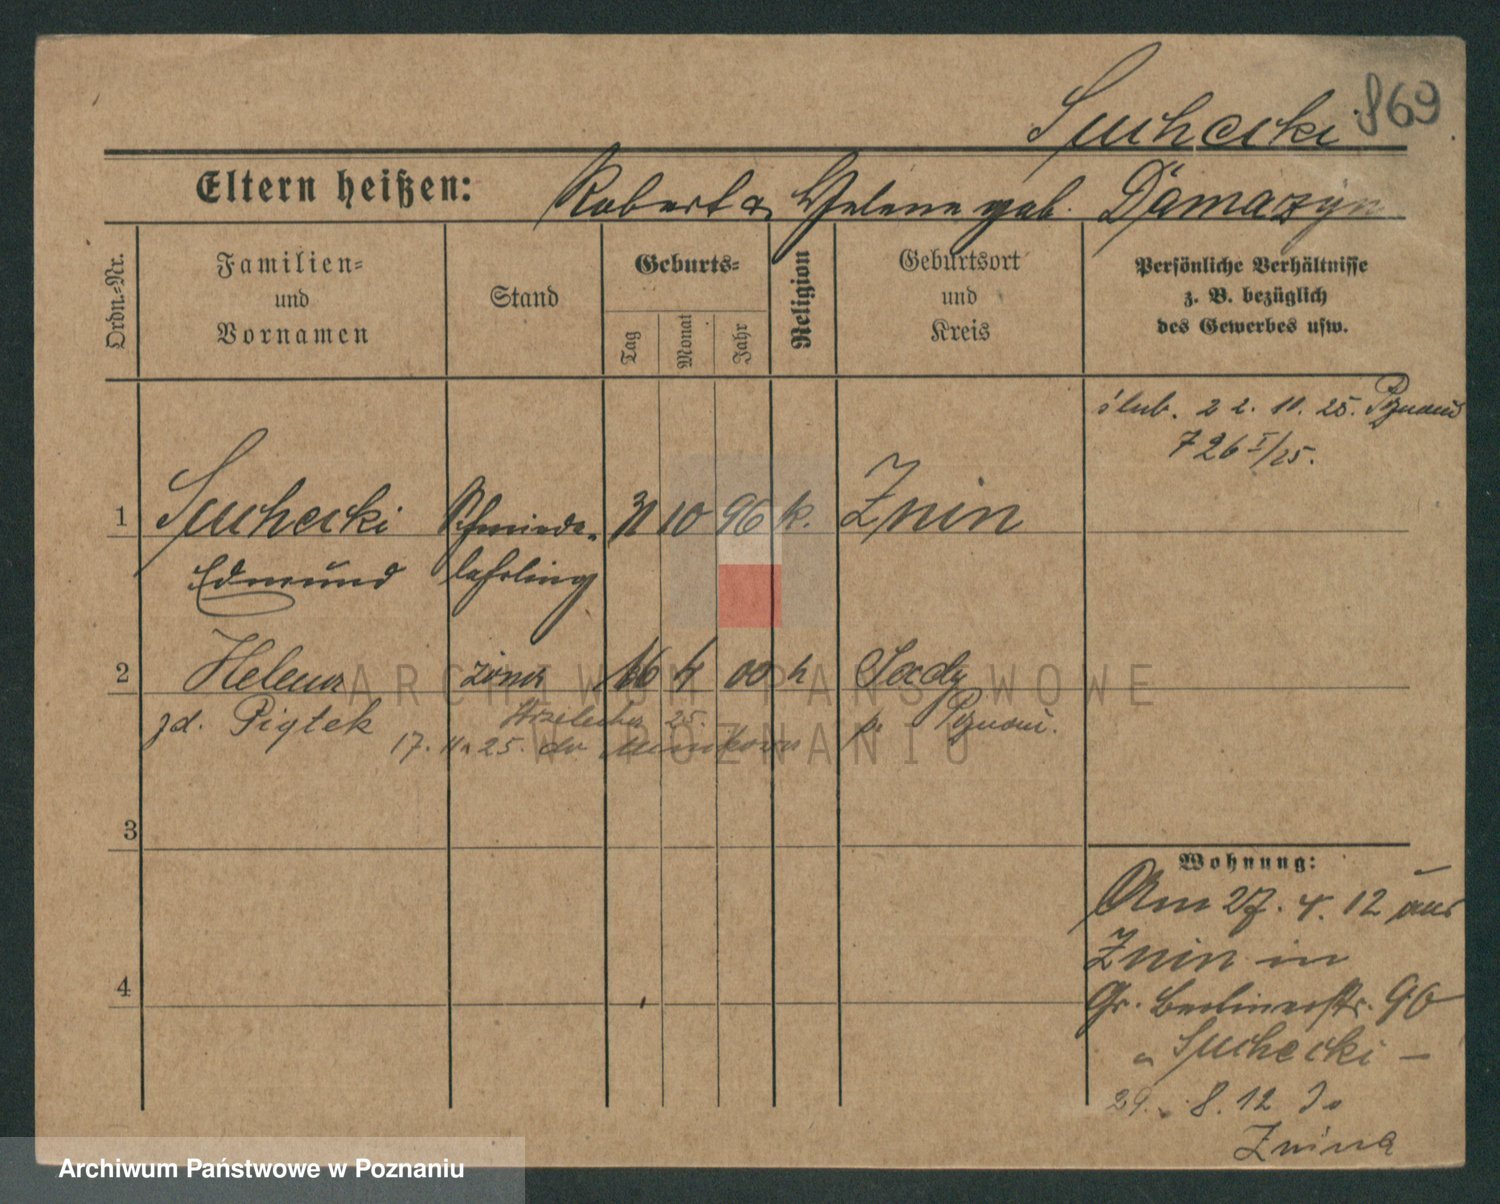 Suchecki 869
Eltern heißen: Robert u. Helene geb. Damazyn
Ordn.-Nr.
Familien-
und
Vornamen
Stand
Geburts-
Tag
Monat
Jahr
Religion
Geburtsort
und
Kreis
Persönliche Verhältnisse
z. B. bezüglich
des Gewerbes usw.
ślub. 22. 11. 25. Poznań
726 I/25.
1 Suchecki Schmiede- 31 10 96 k. Znin
Edmund lehrling
2 Helena żona 16 4 00 k Sady
zd. Piątek p. Poznań.
25.
17. 11. 25. do
3
4
Wohnung:
Am 27. 4. 12 aus
Znin in
Gr. Berlinerstr. 90
Suchecki –
29. 8. 12 do
Znina
ARCHIWUM PAŃSTWOWE
W POZNANIU
Archiwum Państwowe w Poznaniu